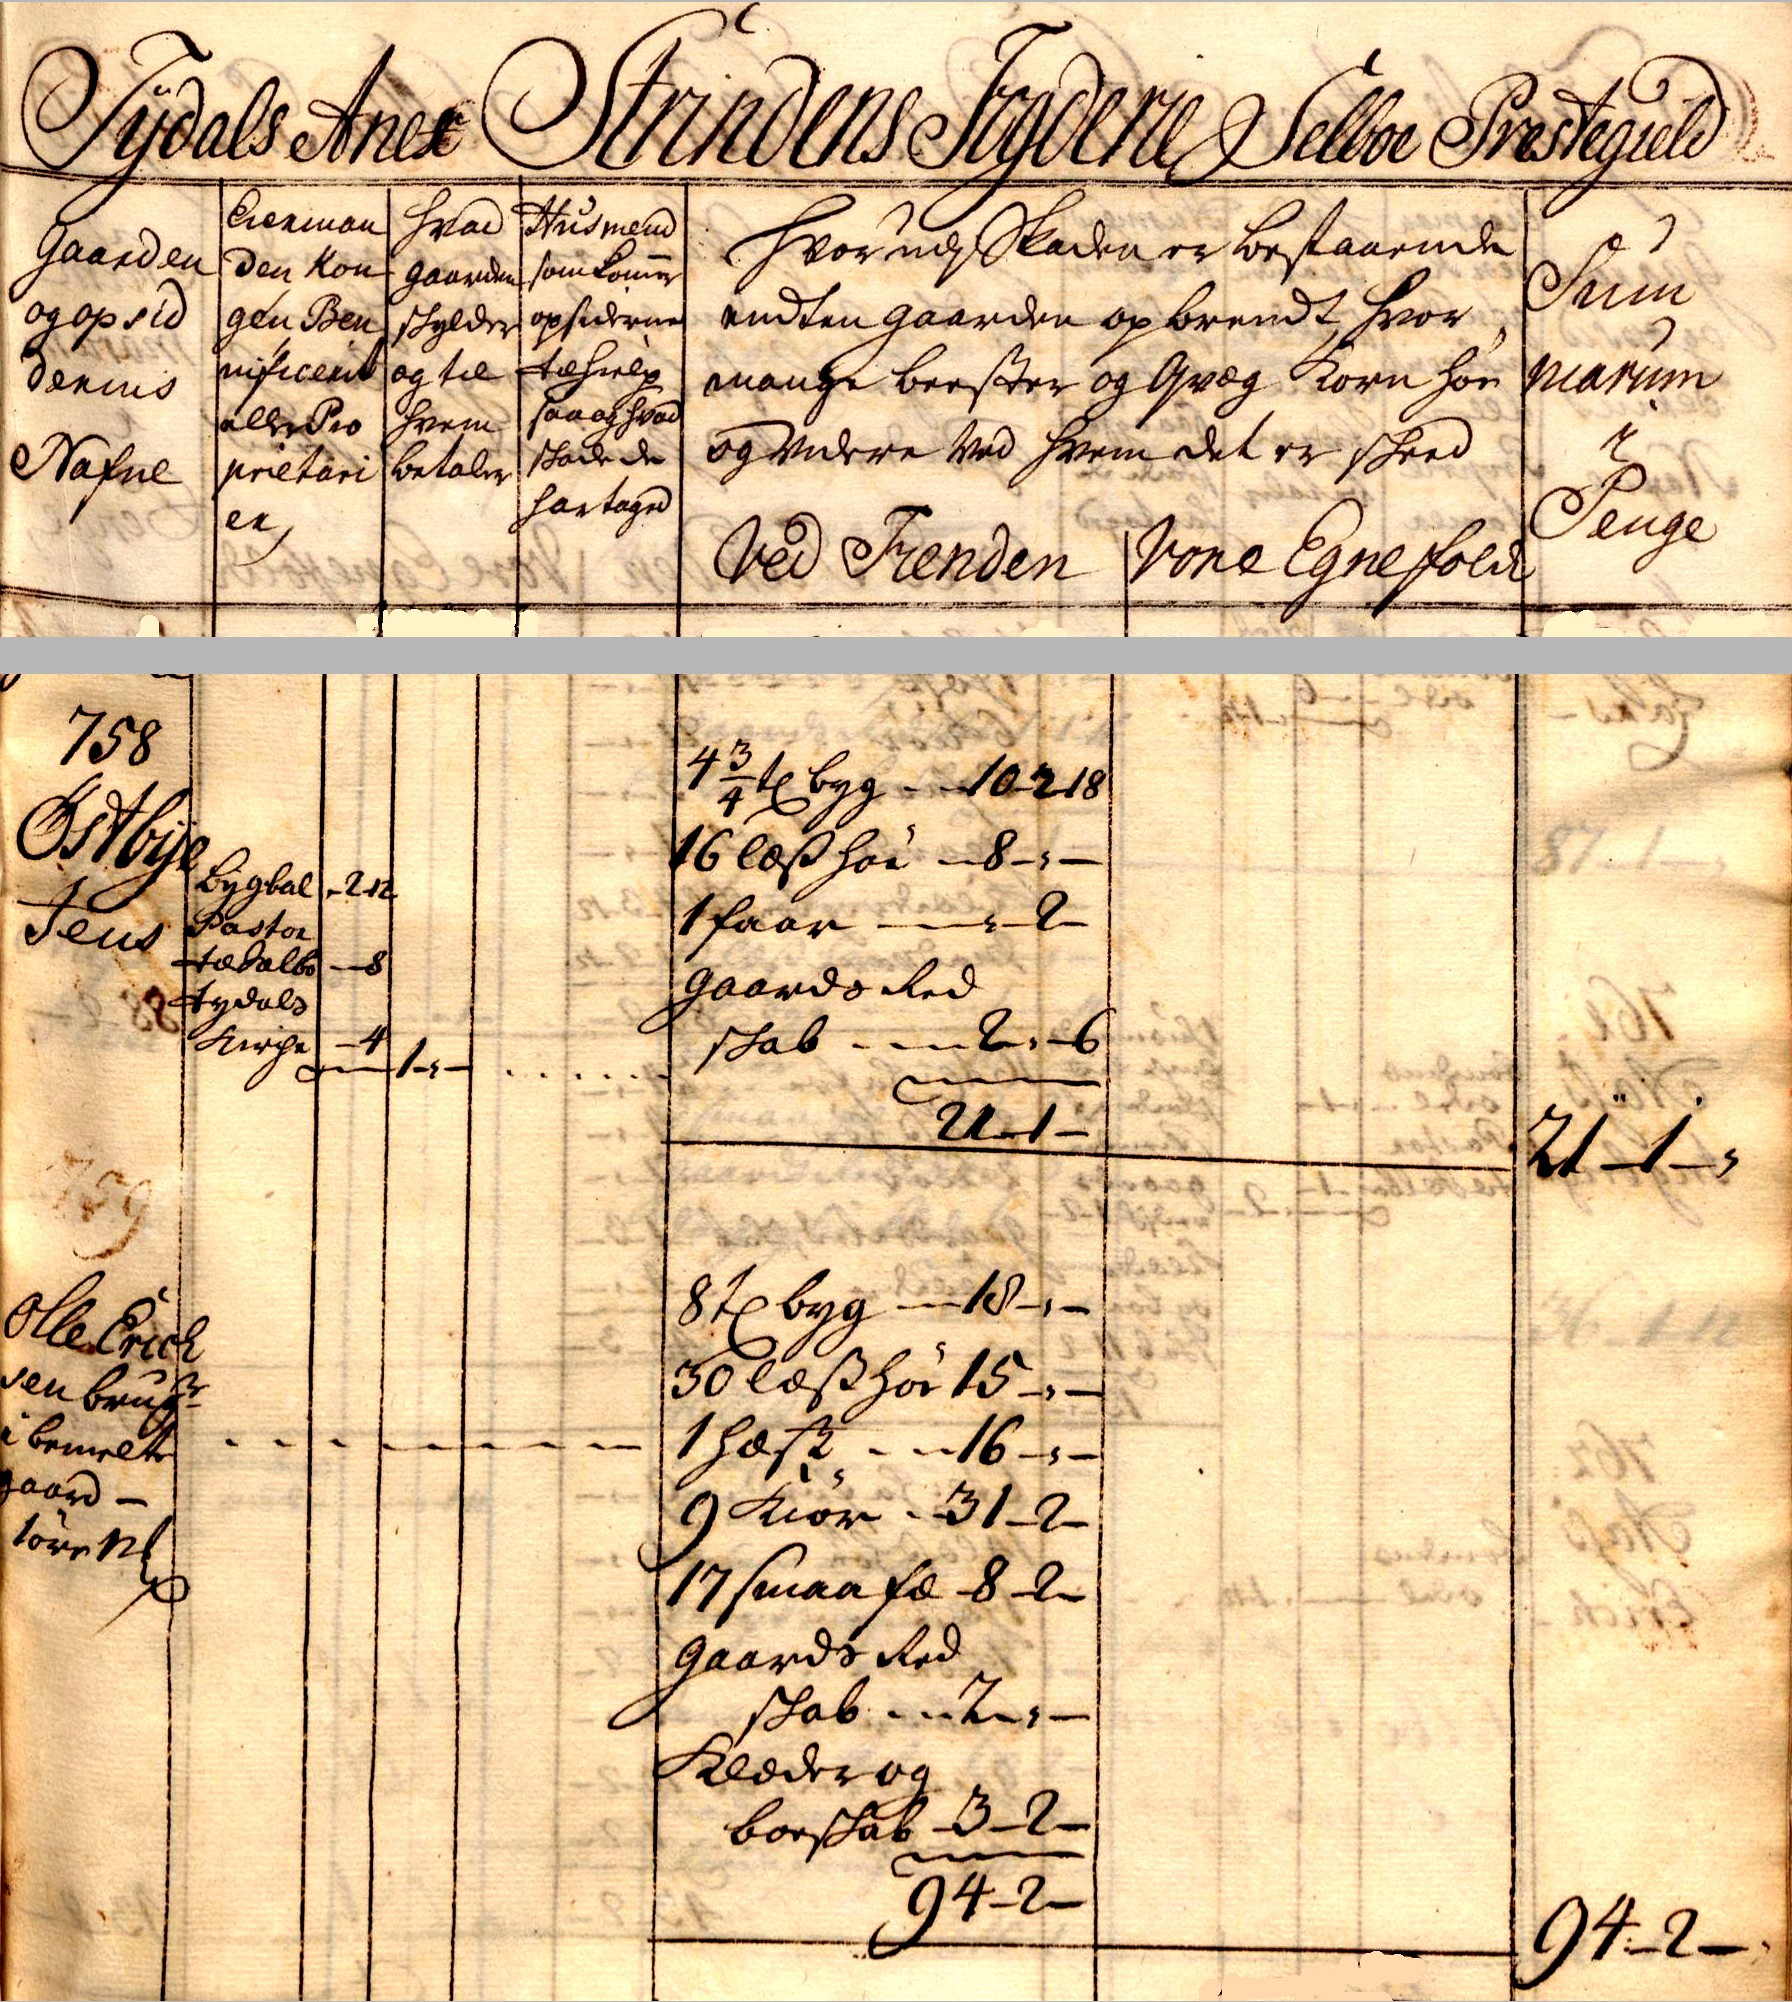 Tÿdals Anex Strindens Fogderie Selboe Prestegield
Gaarden
og opsid
dernis
Nafne
Eierman
den Kon
gen Ben
nificerit
eller Pro
prietari
er,
hvad
gaarden
skylder
og til
hvem
betaler
Husmend
som komer
opsiderne
til hielp
saa og hvad
skade de
har taget
Hvor udj Skaden er bestaaende
endten gaarden opbrendt, hvor
mange beester og Qvæg Korn höe
og videre ved hvem det er skeed
Ved Fienden
Vore Egne folck
Sum
marum
i
Penge
758
Östbÿe
Jens
bÿgbal -2-12
Pastor
til Selbo -8
tydals
Kirche -4
1-"-
4 3/4 tø byg 10-2-18
16 læs höe -8-"-
1 faar -"-2-
gaards Red
skab 2-"-6
21-1-
21-1-"
759
Olle Erich
sen brugr
i bemelte
gaard -
töre N
8 tø byg 18-"-
30 læs höe 15-"-
1 hæst 16-"-
9 Kiör 31-2-
17 smaa fæ -8-2-
gaards Red
skab 2-"-
Klæder og
boeskab -3-2-
94-2-
94-2-